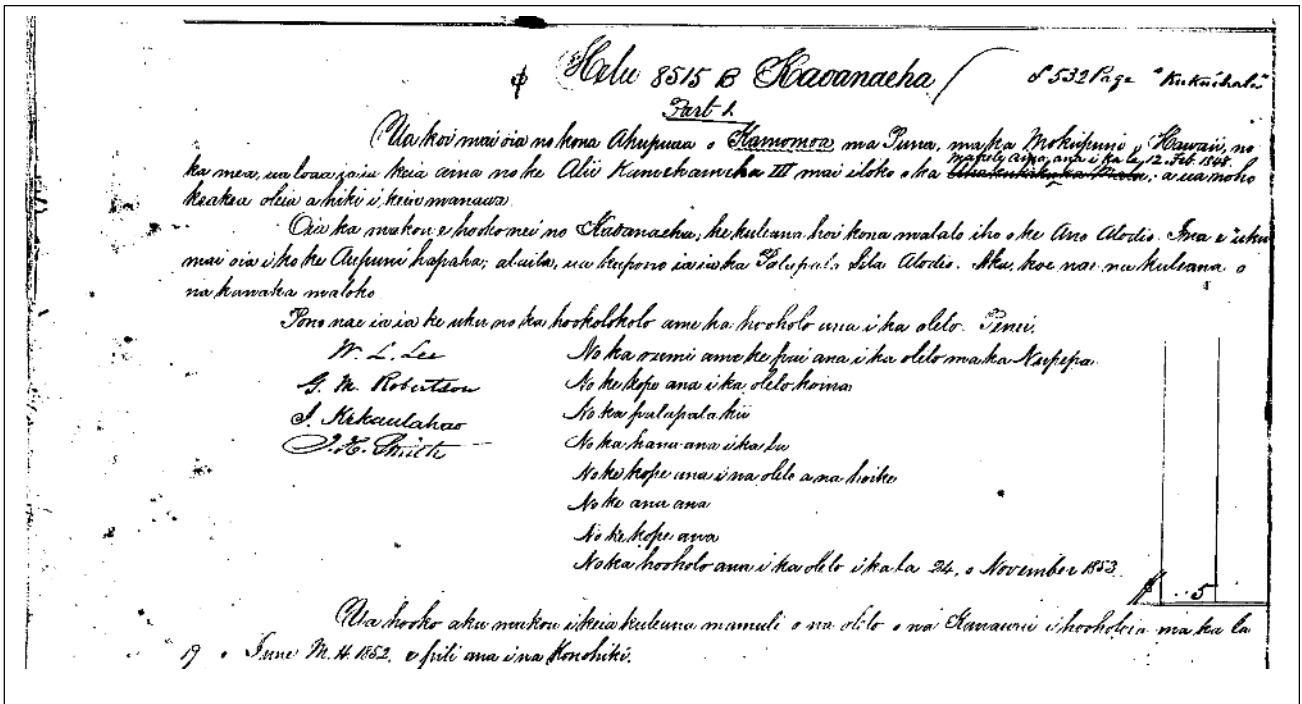 Helu 8515 B Kaoanaeha / 8532 Page "Kukuihala"
Part 1.
Ua koi mai oia no kona Ahupuaa o Kamomoa ma Puna, ma ka Mokupuni o Hawaii, no
mahele aina ana i ka la 12. Feb. 1848.
ka mea, ua loaa ia ia keia aina no ke Alii Kamehameha III mai iloko o ka ; a ua noho
keakea oleia a hiki i keia manawa.
Oia ka makou e hooko nei no Kaoanaeha; he kuleana hoi kona malalo iho o ke Ano Alodio. Ina e uku
mai oia i ko ke Aupuni hapaha; alaila, ua kupono ia ia ka Palapala Sila Alodio. Aka, koe nae na kuleana o
na kanaka maloko.
Pono nae ia ia ke uku no ka hookolokolo ame ka hooholo ana i ka olelo. Penei.
W. L. Lee No ka rumi ame ke pai ana i ka olelo ma ka Nupepa.
G. M. Robertson No ke kope ana i ka olelo hoina
J. Kekaulahao No ka palapala kii
J. H. Smith No ka hana ana i ka la
No ke kope ana i na olelo a na hoike
No ke ana ana
No ke kope ana
No ka hooholo ana i ka olelo i ka la 24, o November 1853.
$ 5
Ua hooko aku makou i keia kuleana mamuli o na olelo o na Kanawai i hooholoia ma ka la
19 o June M.H. 1852. e pili ana i na Konohiki.